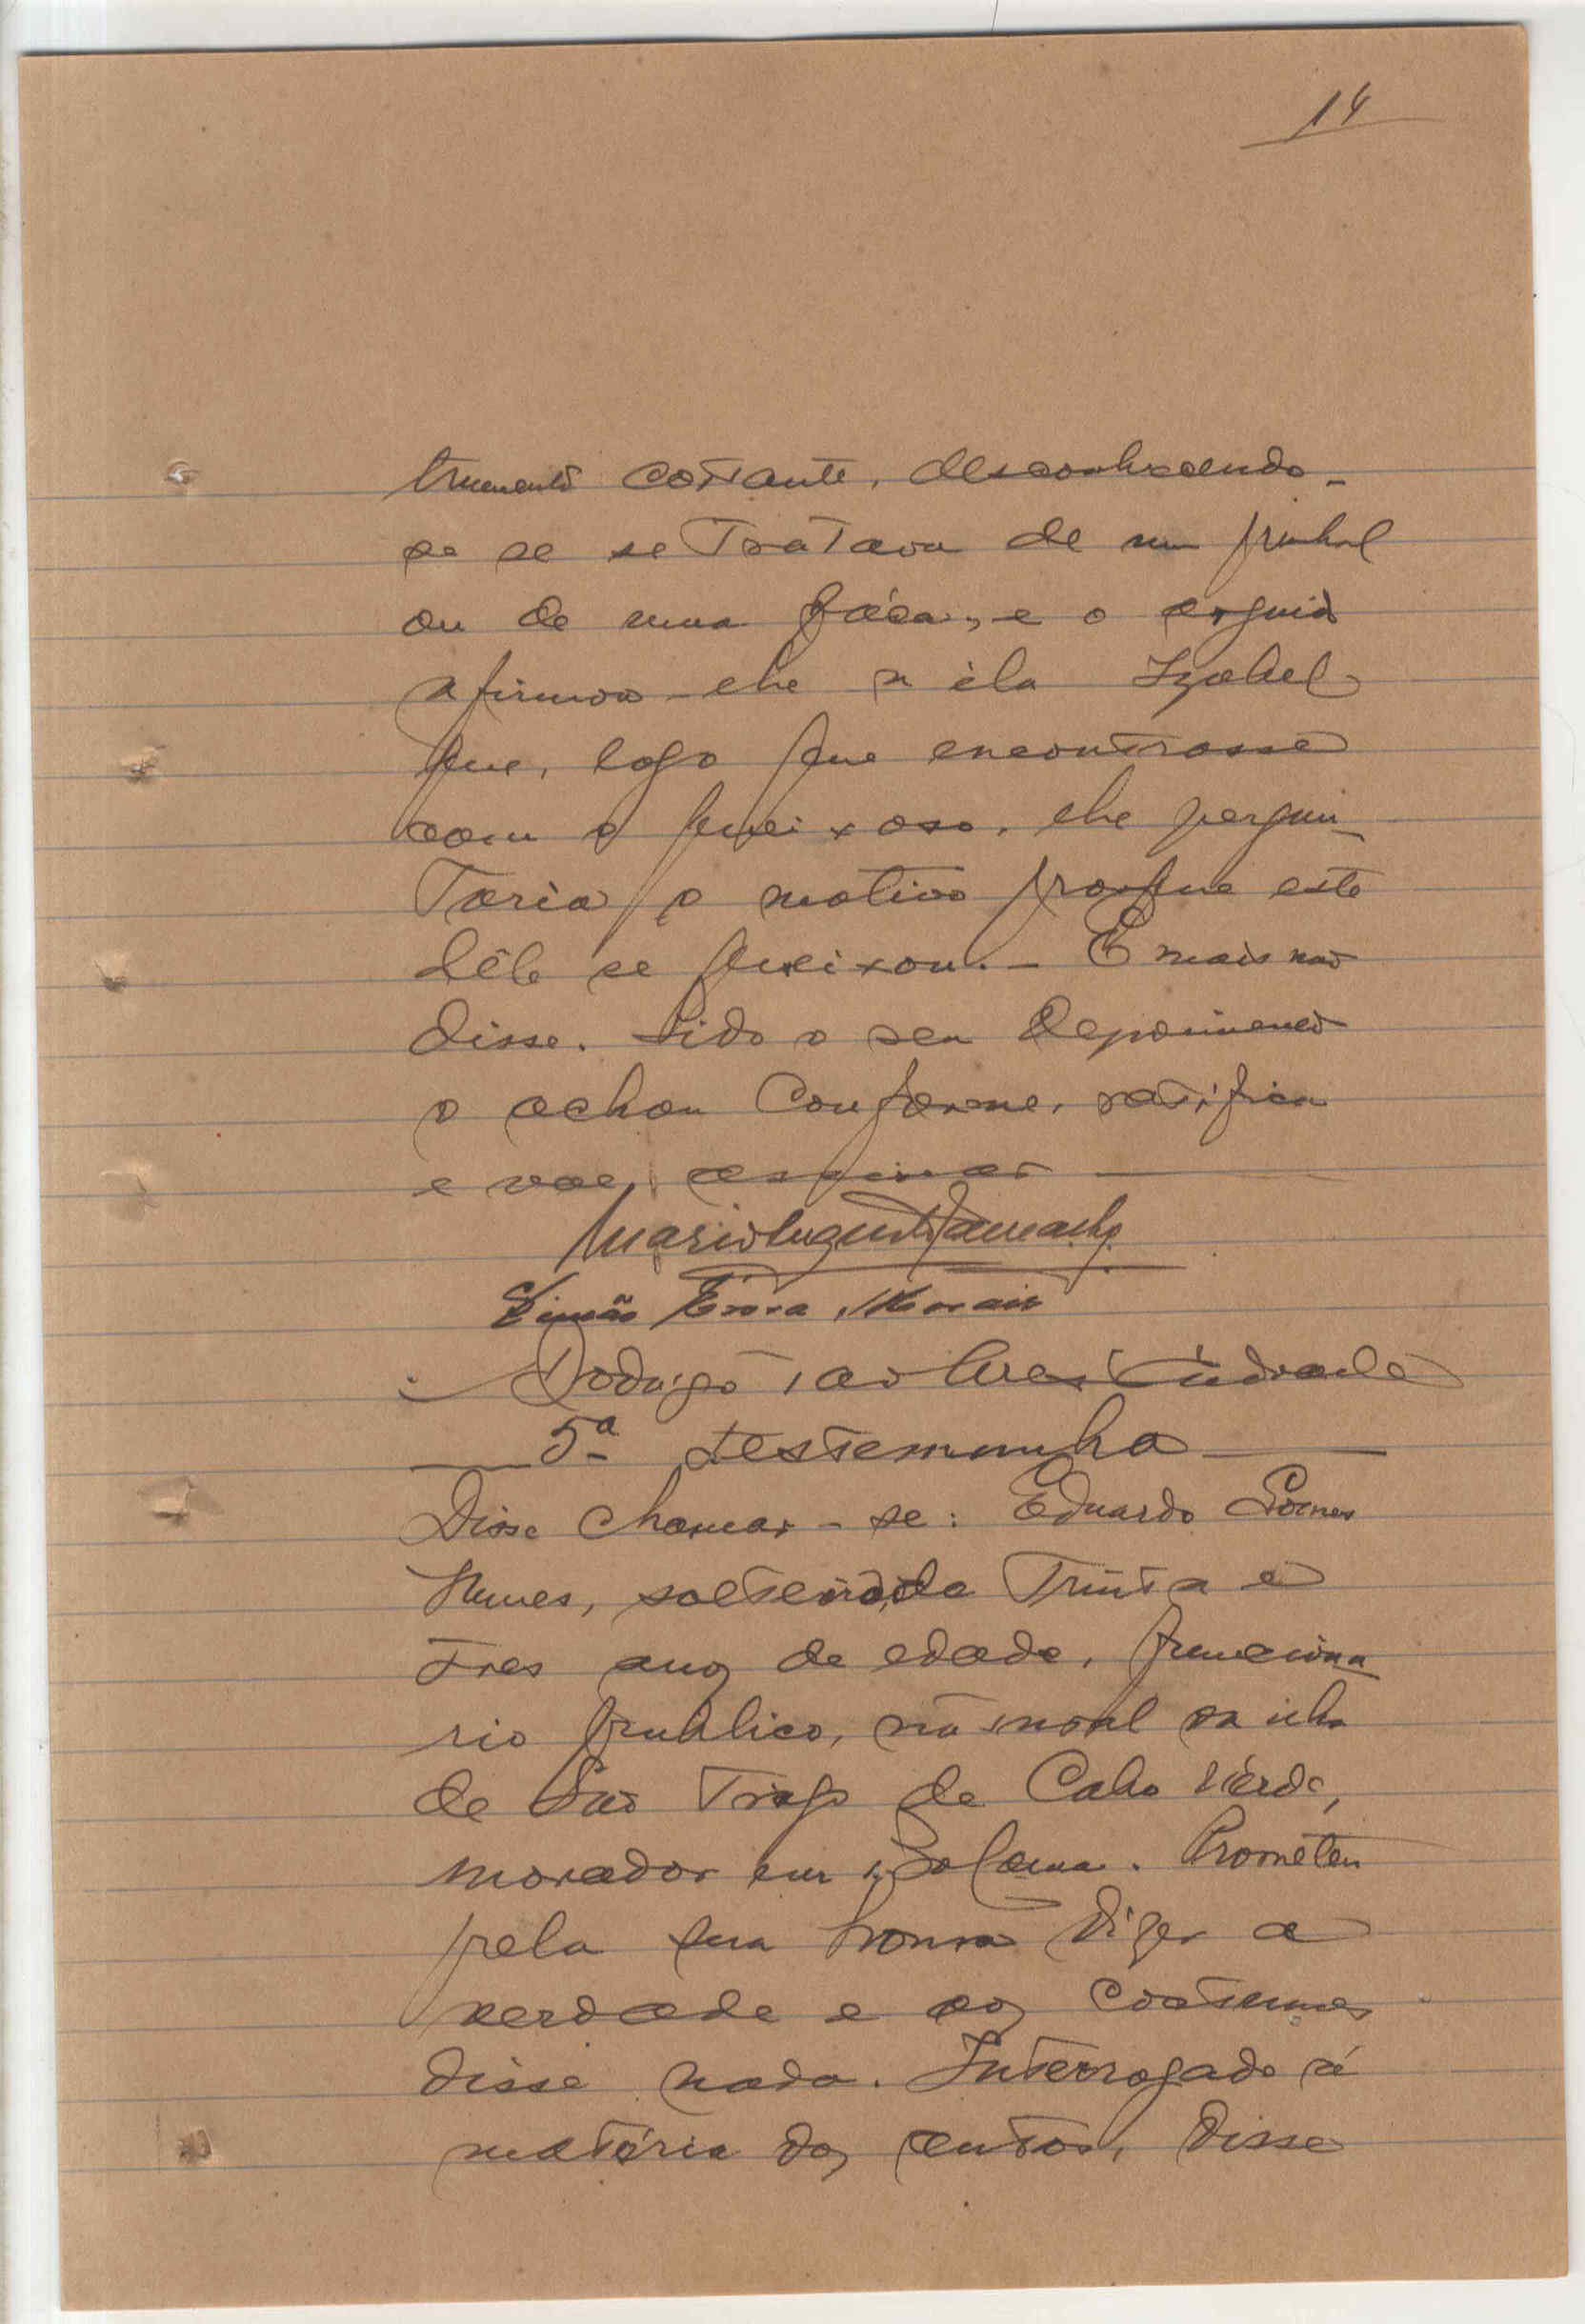 14
trumento cortante, desconhecendo-
se se se tratava de um punhal
ou de uma fáca, e o arguido
afirmou-lhe a éla Izabel
que, logo que encontrasse
com o queixoso, lhe pergun-
taria o motivo porque este
dêle se queixou. - E mais não
disse. Lido o seu depoimento
o achou conforme, ratifica
e vae assinar
Simão Évora Morais
Rodrigo Tavares Andrade
5ª testemunha
Disse chamar-se: Eduardo Gomes
Nunes, solteiro, de trinta e
tres anos de edade, funciona
rio publico, natural da ilha
de São Tiago de Cabo Vérde,
morador em Bolama. Prometeu
pela sua honra dizer a
verdade e aos costumes
disse nada. Interrogado á
matéria dos autos, disse